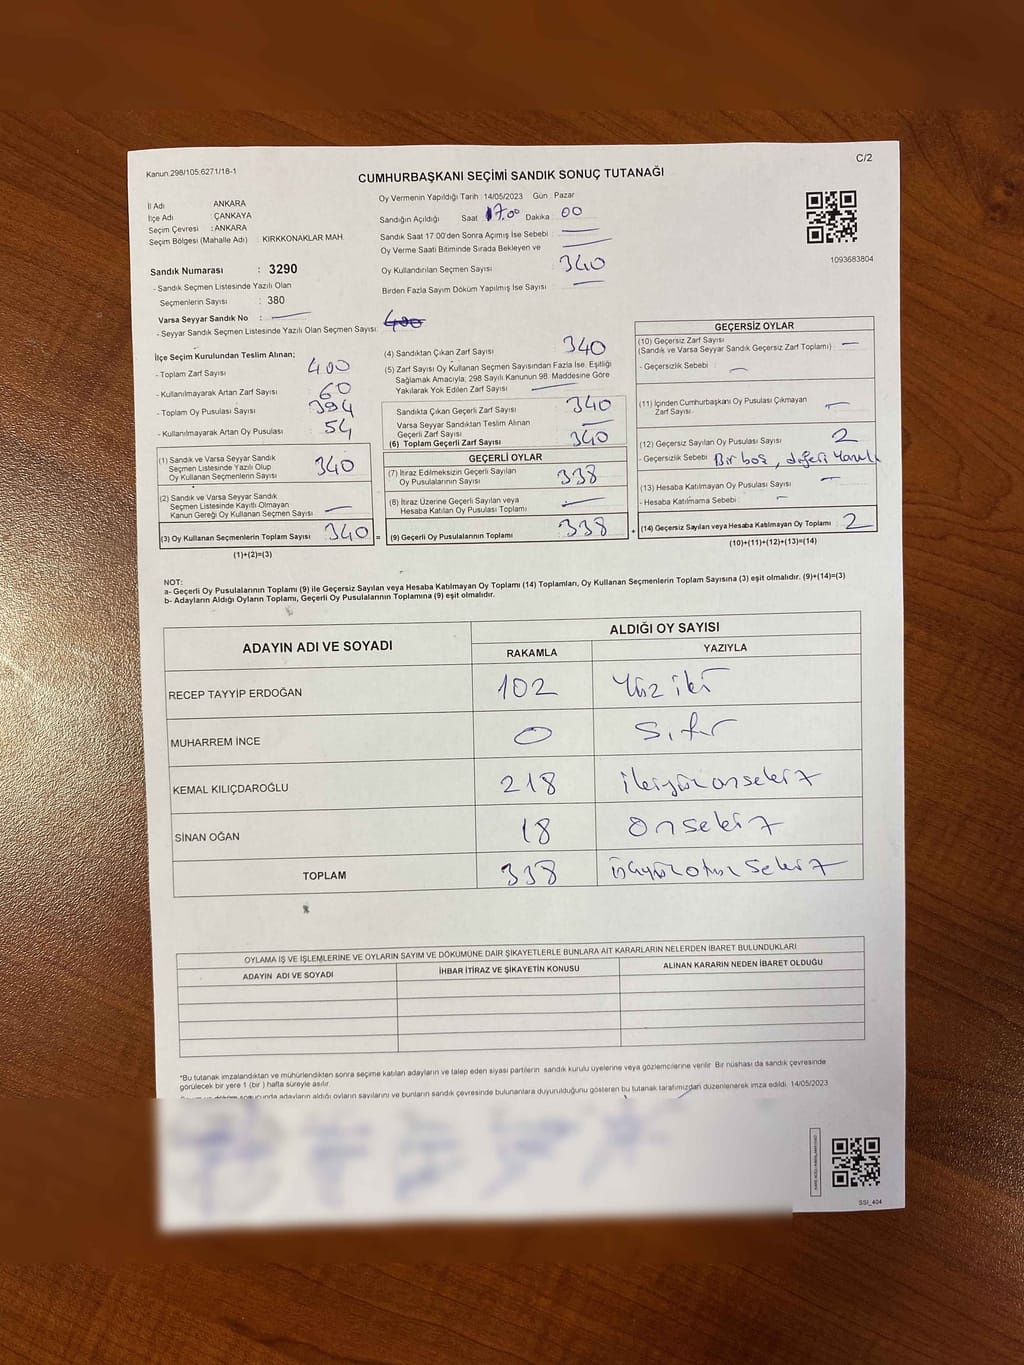 Kanun:298/105;6271/18-1
C/2
CUMHURBAŞKANI SEÇİMİ SANDIK SONUÇ TUTANAĞI
İl Adı : ANKARA
İlçe Adı : ÇANKAYA
Seçim Çevresi : ANKARA
Seçim Bölgesi (Mahalle Adı) : KIRKKONAKLAR MAH.
Sandık Numarası : 3290
- Sandık Seçmen Listesinde Yazılı Olan
Seçmenlerin Sayısı : 380
Varsa Seyyar Sandık No : —
- Seyyar Sandık Seçmen Listesinde Yazılı Olan Seçmen Sayısı:
Oy Vermenin Yapıldığı Tarih :14/05/2023 Gün : Pazar
Sandığın Açıldığı Saat 17.00 Dakika 00
Sandık Saat 17:00'den Sonra Açımış İse Sebebi : —
Oy Verme Saati Bitiminde Sırada Bekleyen ve
Oy Kullandırılan Seçmen Sayısı : 340
Birden Fazla Sayım Döküm Yapılmış İse Sayısı : —
1093683804
İlçe Seçim Kurulundan Teslim Alınan;
- Toplam Zarf Sayısı : 400
- Kullanılmayarak Artan Zarf Sayısı : 60
- Toplam Oy Pusulası Sayısı : 394
- Kullanılmayarak Artan Oy Pusulası : 54
(1) Sandık ve Varsa Seyyar Sandık
Seçmen Listesinde Yazılı Olup
Oy Kullanan Seçmenlerin Sayısı : 340
(2) Sandık ve Varsa Seyyar Sandık
Seçmen Listesinde Kayıtlı Olmayan
Kanun Gereği Oy Kullanan Seçmen Sayısı : —
(3) Oy Kullanan Seçmenlerin Toplam Sayısı : 340 =
(1)+(2)=(3)
(4) Sandıktan Çıkan Zarf Sayısı : 340
(5) Zarf Sayısı Oy Kullanan Seçmen Sayısından Fazla İse, Eşitliği
Sağlamak Amacıyla; 298 Sayılı Kanunun 98. Maddesine Göre
Yakılarak Yok Edilen Zarf Sayısı : —
Sandıkta Çıkan Geçerli Zarf Sayısı : 340
Varsa Seyyar Sandıktan Teslim Alınan
Geçerli Zarf Sayısı : —
(6) Toplam Geçerli Zarf Sayısı : 340
GEÇERLİ OYLAR
(7) İtiraz Edilmeksizin Geçerli Sayılan
Oy Pusulalarının Sayısı : 338
(8) İtiraz Üzerine Geçerli Sayılan veya
Hesaba Katılan Oy Pusulası Toplamı : —
(9) Geçerli Oy Pusulalarının Toplamı : 338 +
GEÇERSİZ OYLAR
(10) Geçersiz Zarf Sayısı :
(Sandık ve Varsa Seyyar Sandık Geçersiz Zarf Toplamı) : —
- Geçersizlik Sebebi : —
(11) İçinden Cumhurbaşkanı Oy Pusulası Çıkmayan
Zarf Sayısı : —
(12) Geçersiz Sayılan Oy Pusulası Sayısı : 2
- Geçersizlik Sebebi : Bir boş, diğeri
(13) Hesaba Katılmayan Oy Pusulası Sayısı : —
- Hesaba Katılmama Sebebi : —
(14) Geçersiz Sayılan veya Hesaba Katılmayan Oy Toplamı : 2
(10)+(11)+(12)+(13)=(14)
NOT:
a- Geçerli Oy Pusulalarının Toplamı (9) ile Geçersiz Sayılan veya Hesaba Katılmayan Oy Toplamı (14) Toplamları, Oy Kullanan Seçmenlerin Toplam Sayısına (3) eşit olmalıdır. (9)+(14)=(3)
b- Adayların Aldığı Oyların Toplamı, Geçerli Oy Pusulalarının Toplamına (9) eşit olmalıdır.
ADAYIN ADI VE SOYADI ALDIĞI OY SAYISI
RAKAMLA YAZIYLA
RECEP TAYYİP ERDOĞAN 102 Yüz iki
MUHARREM İNCE 0 Sıfır
KEMAL KILIÇDAROĞLU 218 ikiyüzonsekiz
SİNAN OĞAN 18 Onsekiz
TOPLAM 338 üçyüzotuz sekiz
OYLAMA İŞ VE İŞLEMLERİNE VE OYLARIN SAYIM VE DÖKÜMÜNE DAİR ŞİKAYETLERLE BUNLARA AİT KARARLARIN NELERDEN İBARET BULUNDUKLARI
ADAYIN ADI VE SOYADI İHBAR İTİRAZ VE ŞİKAYETİN KONUSU ALINAN KARARIN NEDEN İBARET OLDUĞU
*Bu tutanak imzalandıktan ve mühürlendikten sonra seçime katılan adayların ve talep eden siyasi partilerin sandık kurulu üyelerine veya gözlemcilerine verilir. Bir nüshası da sandık çevresinde
görülecek bir yere 1 (bir ) hafta süreyle asılır.
adayların aldığı oyların sayılarını ve bunların sandık çevresinde bulunanlara duyurulduğunu gösteren bu tutanak tarafımızdan düzenlenerek imza edildi. 14/05/2023
SSI_404